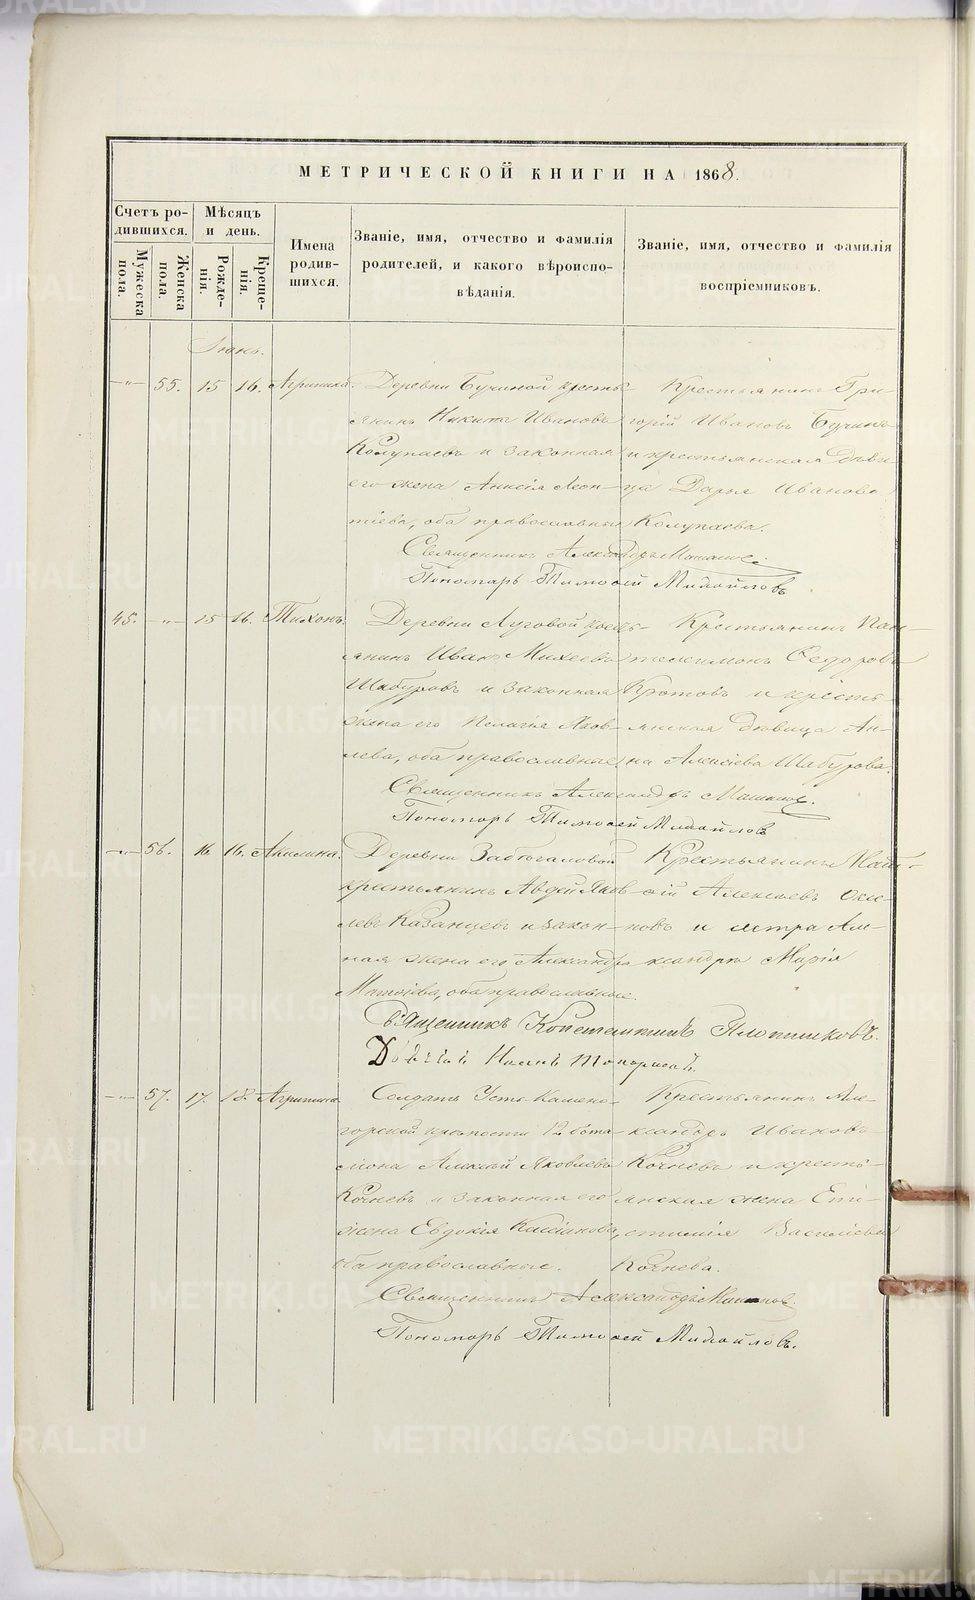 МЕТРИЧЕСКОЙ КНИГИ НА 1868.
Счетъ ро-
дившихся.
Мужеска
пола.
Женска
пола.
Мѣсяцъ
и день.
Рожде-
нія.
Креще-
нія.
Имена
родив-
шихся.
Званіе, имя, отчество и фамилія
родителей, и какого вѣроиспо-
вѣданія.
Званіе, имя, отчество и фамилія
воспріемниковъ.
Іюнь.
—„— 55. 15 16. Агрипина.
Деревни Бучиной кресть-
янинъ Никита Ивановъ
Колупаевъ и законная
его жена Анисія Леон-
тіева, оба православныя
Крестьянинъ Гри-
горій Ивановъ Бучинъ
и крестьянская дѣви-
ца Дарья Иванова
Колупаева.
Священникъ Александръ
Пономарь Тимоѳей Михайловъ
45. —„— 15 16. Тихонъ.
Деревни Луговой кресть-
янинъ Иванъ Михеевъ
Шабуровъ и законная
жена его Пелагія Яков-
лева, оба православные
Крестьянинъ Пан-
телеимонъ Ѳедоровъ
Кротовъ и кресть-
янская дѣвица Ан-
на Алексіева Шабурова.
Священникъ Александръ
Пономарь Тимоѳей Михайловъ
—„— 56. 16. 16. Акилина.
Деревни
крестьянинъ Авдей Яков-
левъ Казанцевъ и закон-
ная жена его Александра
Матѳіева, оба православные.
Крестьянинъ Мат-
ѳій Алексіевъ
новъ и сестра Але-
ксандра Марія
Священникъ Константинъ Плотниковъ.
Иоаннъ Топорковъ.
—„— 57. 17. 18. Агрипина
Солдатъ Усть-Камено-
горской крѣпости 12 бата-
ліона Алексѣй Яковлевъ
Кочневъ и законная его
жена Евдокія Кассіанова,
оба православные.
Крестьянинъ Але-
ксандръ Ивановъ
Кочневъ и кресть-
янская жена Епи-
стимія Василіева
Кочнева.
Священникъ Александръ
Пономарь Тимоѳей Михайловъ.
METRIKI.GASO-URAL.RU